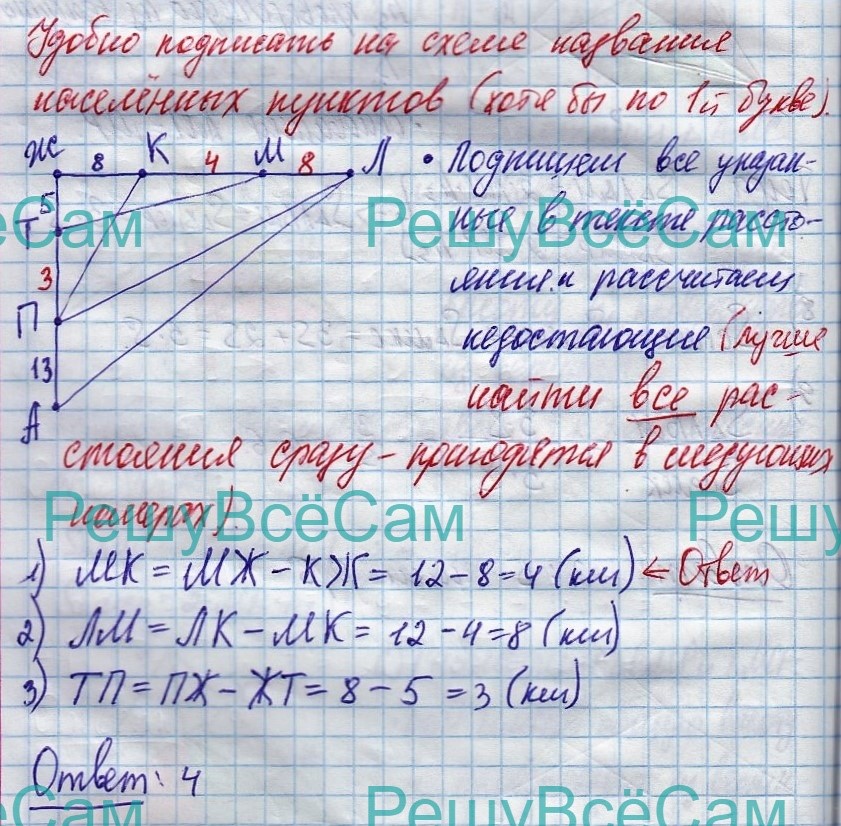 Удобно подписать на схеме названия
населённых пунктов (хотя бы по 1й букве).
Ж 8 К 4 М 8 Л • Подпишем все указан-
5
ные в тексте рассто-
Т
РешуВсёСам РешуВсёСам
3
яния и рассчитаем
П
недостающие (лучше
13
найти все рас-
А
стояния сразу - пригодятся в следующих
номерах).
РешуВсёСам РешуВсёСам
1) МК = МЖ - КЖ = 12 - 8 = 4 (км) ← Ответ
2) ЛМ = ЛК - МК = 12 - 4 = 8 (км)
3) ТП = ПЖ - ЖТ = 8 - 5 = 3 (км)
Ответ: 4
РешуВсёСам РешуВсёСам